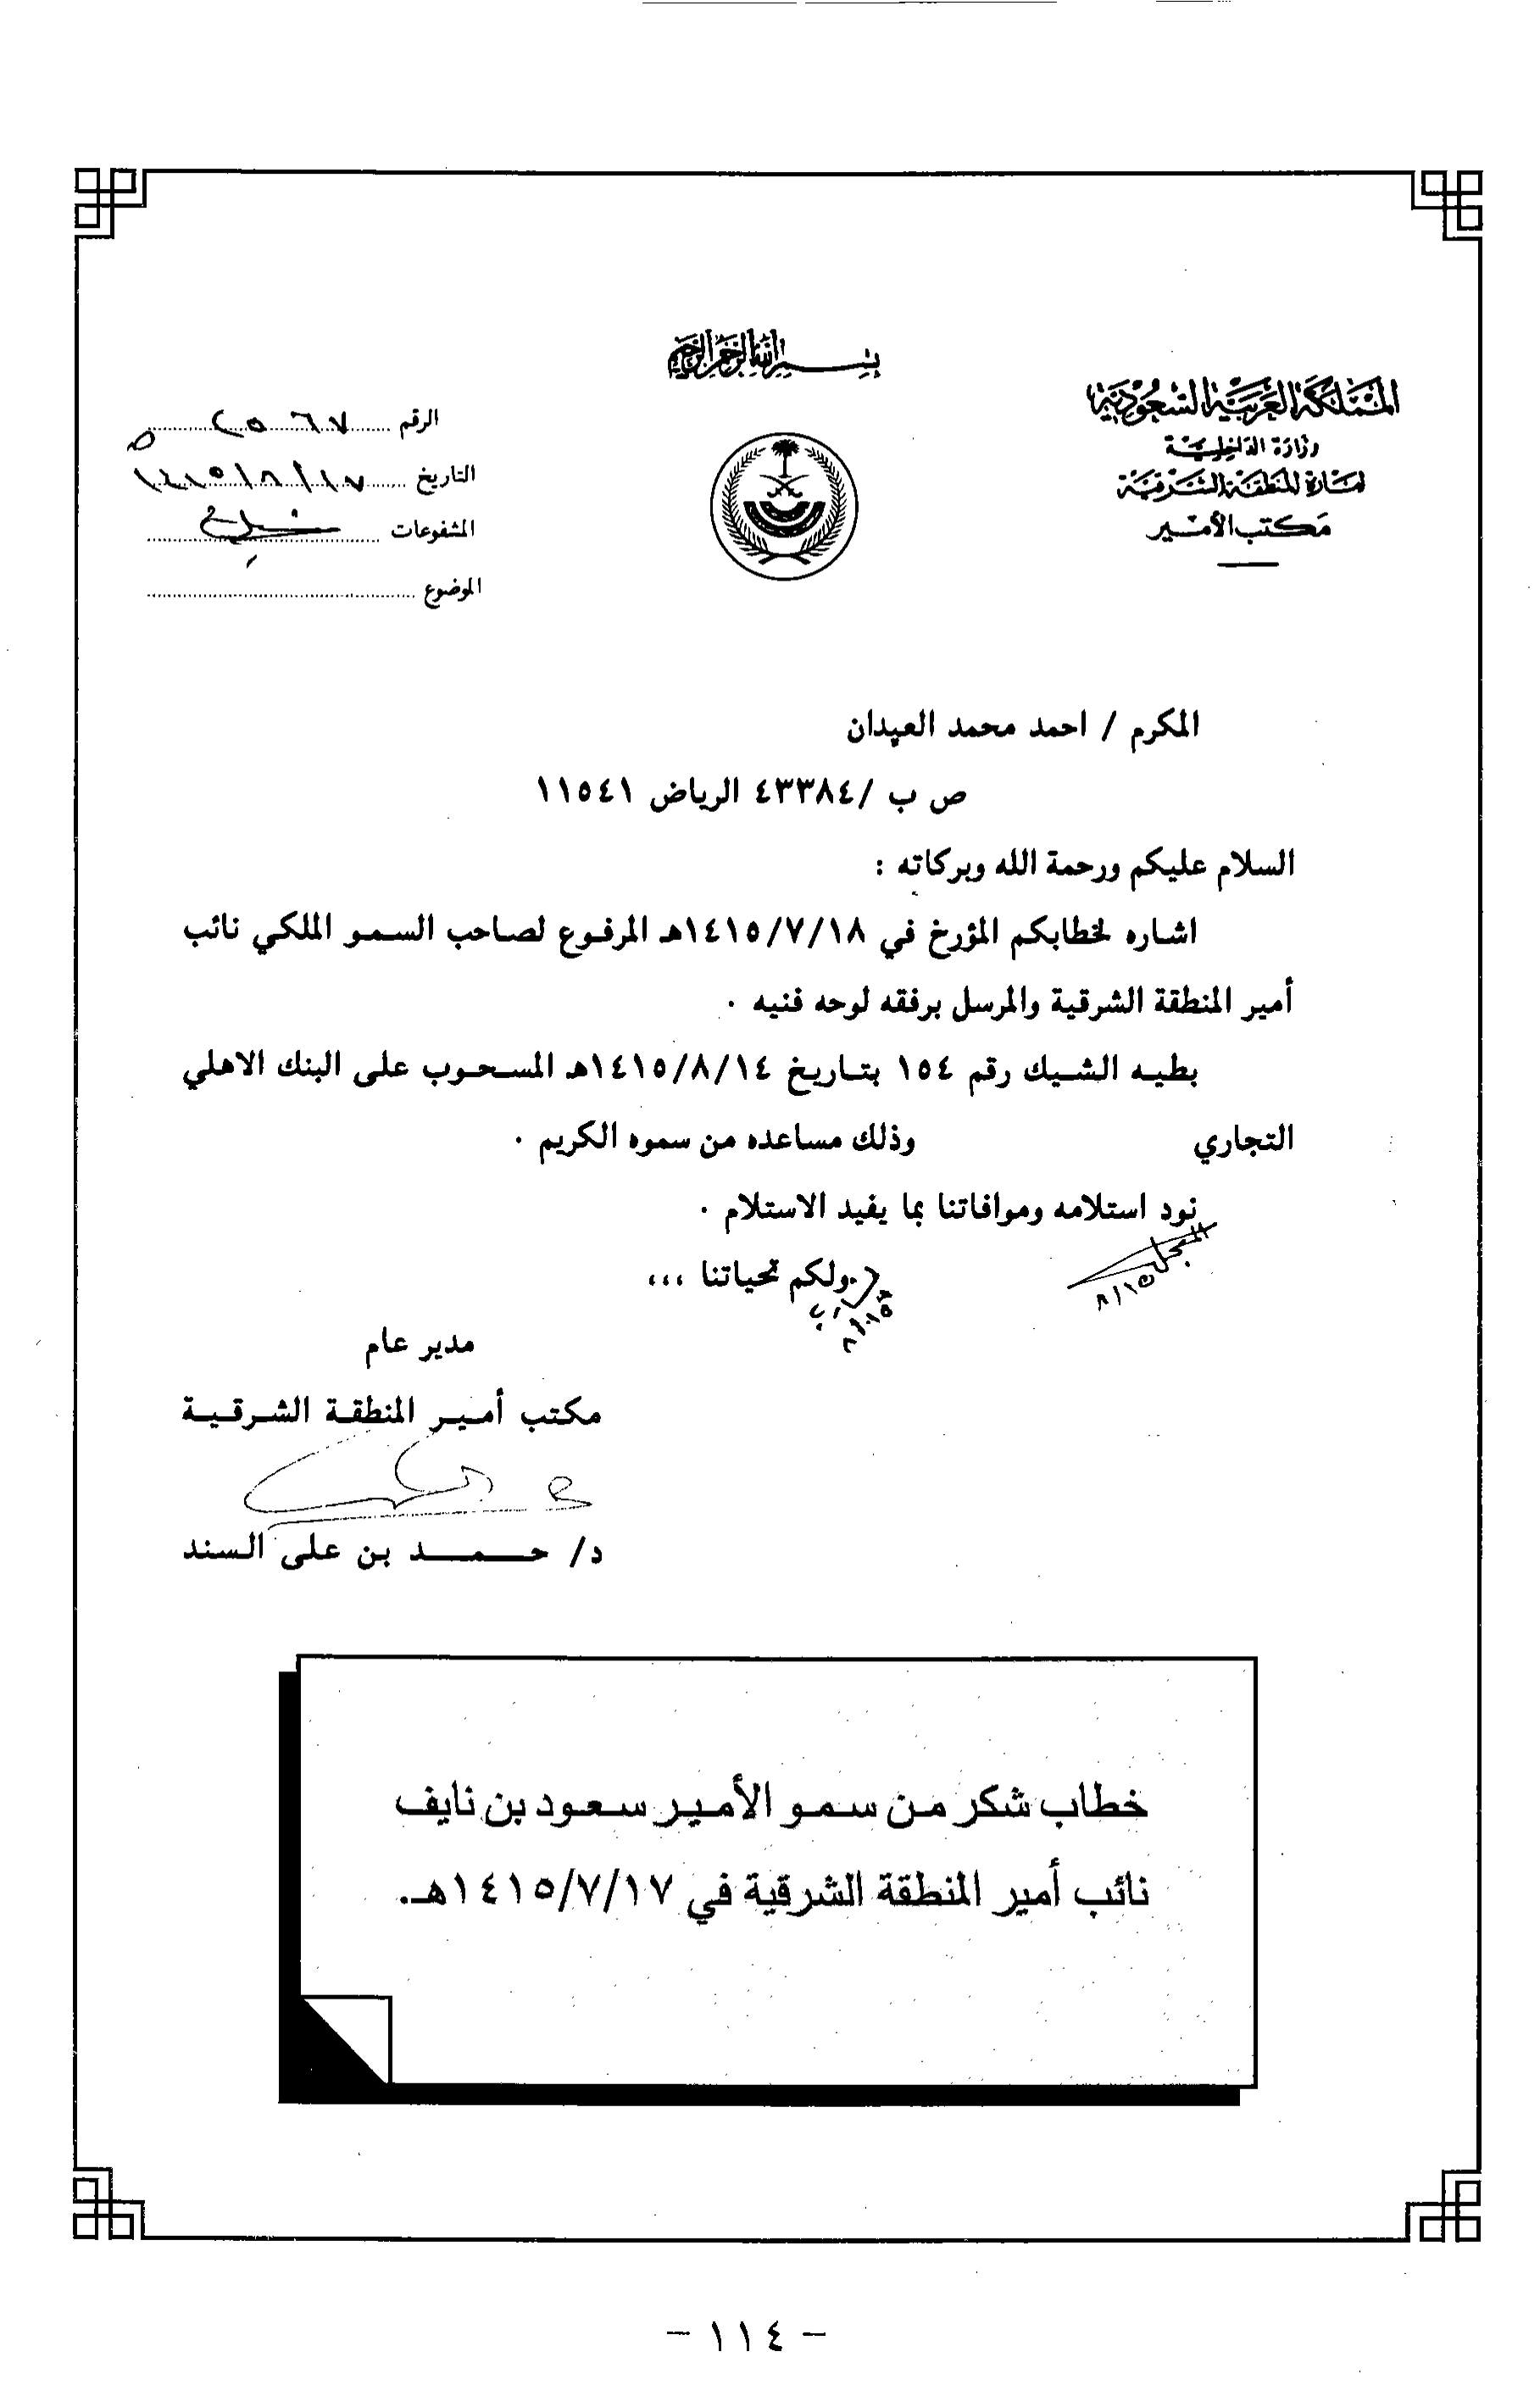 بسم الله الرحمن الرحيم
المملكة العربية السعودية
وزارة الداخلية
إمارة المنطقة الشرقية
مكتب الأمير
الرقم ٢٥٦٧
التاريخ ١٤١٥/٨/١٧
المشفوعات
الموضوع
المكرم / احمد محمد العيدان
ص ب /٤٣٣٨٤ الرياض ١١٥٤١
السلام عليكم ورحمة الله وبركاته :
اشاره لخطابكم المؤرخ في ١٤١٥/٧/١٨هـ المرفوع لصاحب السمو الملكي نائب
أمير المنطقة الشرقية والمرسل برفقه لوحه فنيه .
بطيه الشيك رقم ١٥٤ بتاريخ ١٤١٥/٨/١٤هـ المسحوب على البنك الاهلي
التجاري وذلك مساعده من سموه الكريم .
نود استلامه وموافاتنا بما يفيد الاستلام .
ولكم تحياتنا ،،،
٨/١٥
٨/١٥
مدير عام
مكتب أمير المنطقة الشرقية
د/ حمد بن على السند
خطاب شكر من سمو الأمير سعود بن نايف
نائب أمير المنطقة الشرقية في ١٤١٥/٧/١٧هـ.
- ١١٤ -